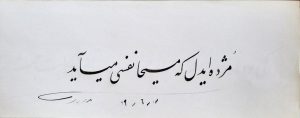 مژده ایدل که مسیحا نفسی میآید